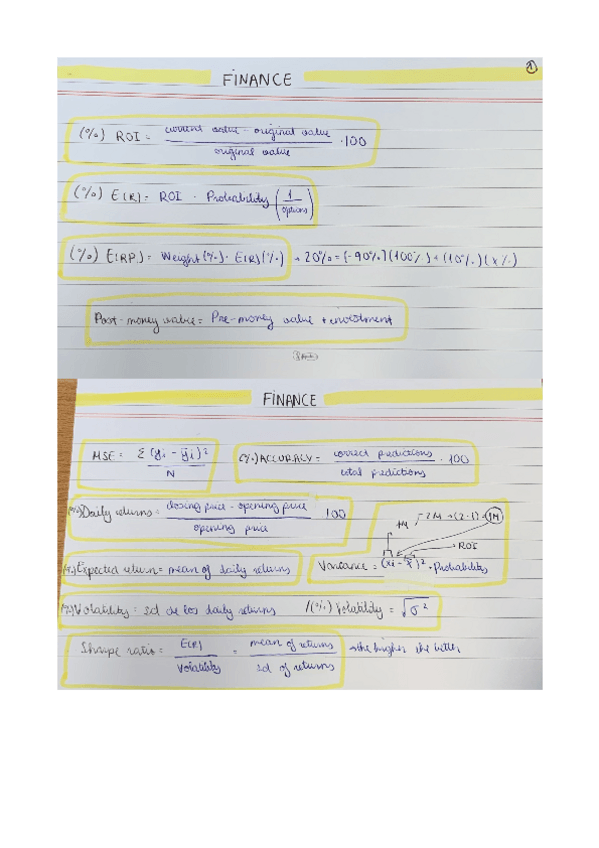 FINANCE
1
(%) ROI = current value - original value / original value · 100
(%) E(R) = ROI · Probability (1 / options)
(%) E(RP) = Weight (%) · E(R) (%) → 20% = (-90%) (100%) + (10%) (x%)
Post-money value = Pre-money value + investment
FINANCE
MSE = Σ (yi - ŷi)² / N
(%) ACCURACY = correct predictions / total predictions · 100
(%) Daily returns = closing price - opening price / opening price · 100
1M
2M → (2-1) = 1M
ROI
(%) Expected return = mean of daily returns
Variance = (xi - x̄)² · Probability
(%) Volatility = sd de los daily returns / (%) Volatility = √σ²
Sharpe ratio = E(R) / Volatility = mean of returns / sd of returns → the higher the better